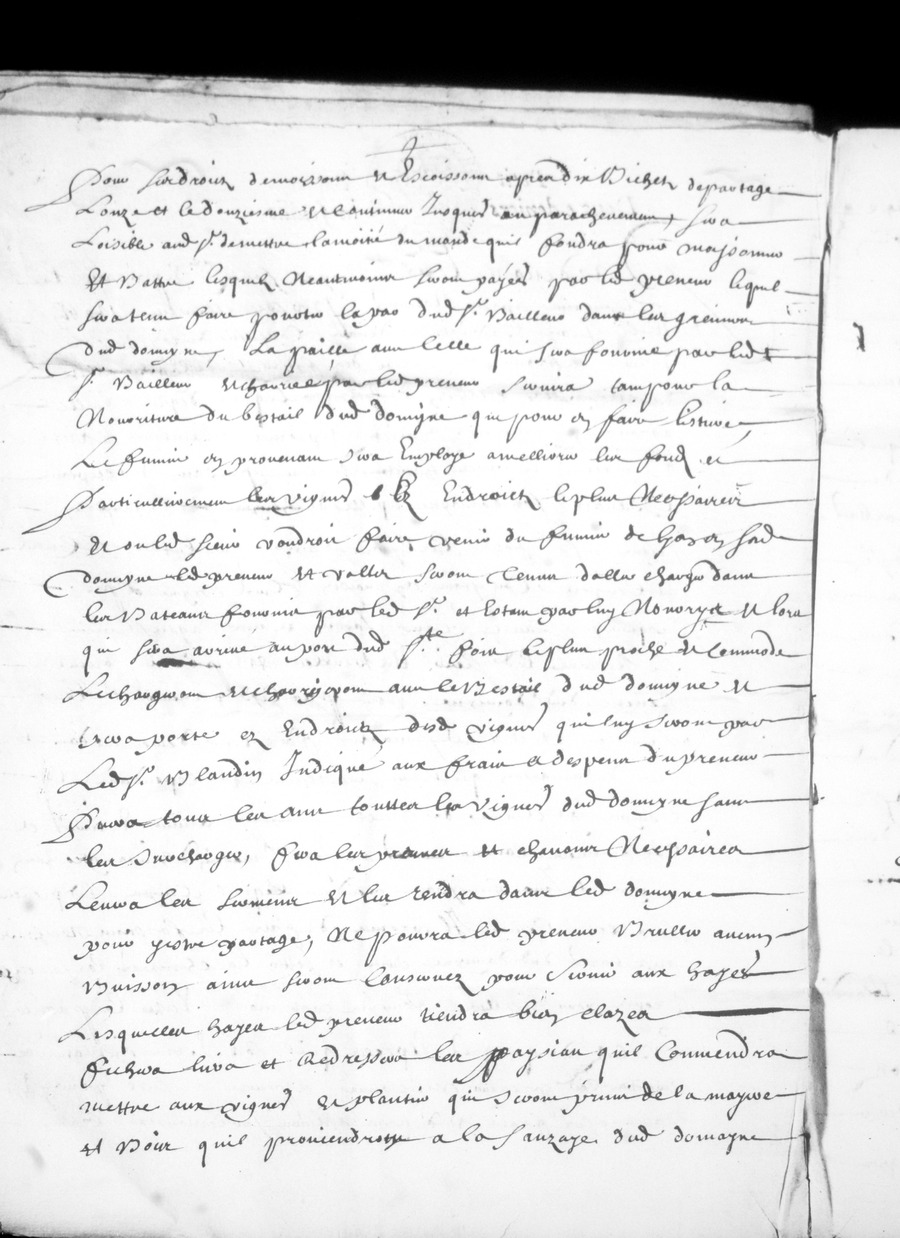 Pour ses droictz de moissons et Escoissons apres dix Bichetz de partage
L'onze et le douziesme et continuer Jusques au parachevement, sera
Loisible aud Sr. de mettre la moitié du monde qu'il fondra pour moissonner
Et Battre lesquelz Neantmoins seront payés par led preneur lequel
sera tenu faire porter la part dud Sr. Bailleur dans les greniers
dud domayne, La paille avec celle qui sera fournie par led
Sr. Bailleur et charriée par led preneur servira tant pour la
Nourriture du bestail dud domayne que pour en faire listiere,
Le fumier en provenant sera Employé a melliorer les fondz et
Particullierement les vignes Es Endroictz le plus Necessaires
Et ou led sieur voudroit faire venir du fumier de hors en sond
domayne led preneur et valletz seront tenus d'aller charger dans
les Bateaux fournis par led Sr. et estant par luy Nourrys et lors
que sera arrivé au port dud Ste. foix le plus proche et commode
Le chargeront et charrieront avec le Bestail dud domayne et
sera porté ez Endroictz desd vignes qui luy seront par
Led Sr. Blandin Indiqué aux fraix et despens du preneur
tous les ans touttes les vignes dud domayne sans
les surcharger, fera les et Necessaires
Levera les sermens et les rendra dans led domayne
pour y estre partagé, Ne pourra led preneur Brusler aucun
Buisson ains seront conservez pour servir aux hayes
Lesquelles hayes led preneur tiendra bien clozes
fichera liera et Redressera les paysseau qu'il conviendra
mettre aux vignes et plantier qui seront prins de la
et Bois qu'il proviendront a la Sauzaye dud domayne